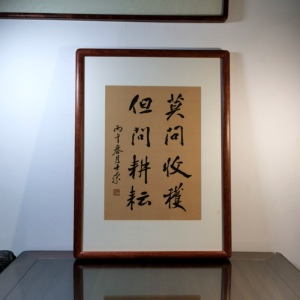 莫问收穫
但问耕耘
丙午春月